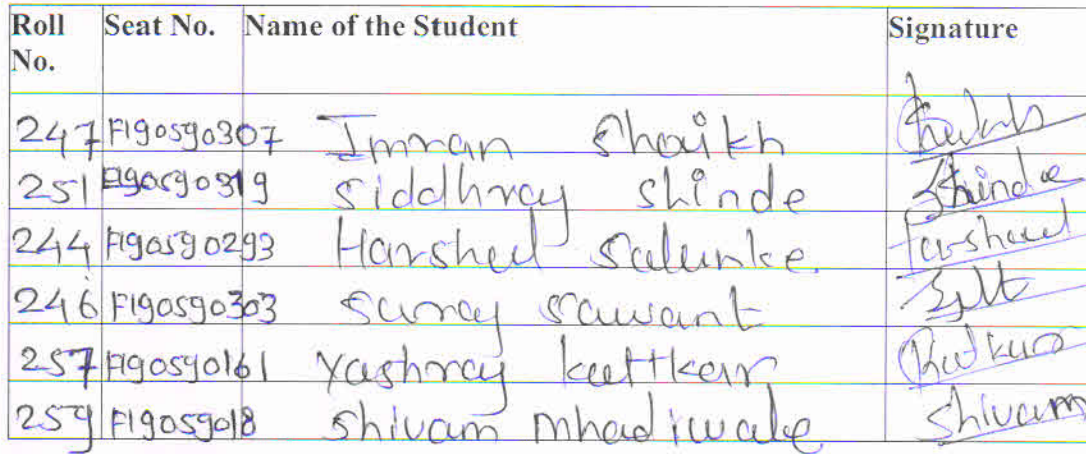 Roll No. Seat No. Name of the Student Signature
247 F190590307 Imran Shaikh
251 F190590319 Siddhraj Shinde Shinde
244 F190590293 Harshed Salunke
246 F190590303 Suraj Sawant
257 F190590161 Yashraj kattkar
259 F19059018 Shivam mhadiwale Shivam